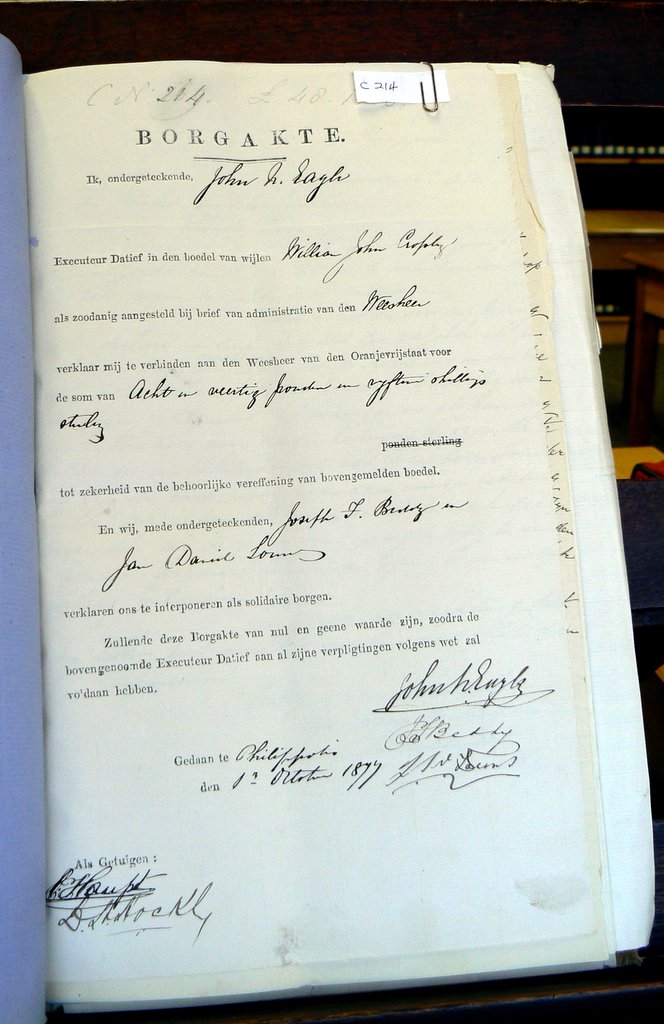 C No 214. £ 48.
C 214
BORGAKTE.
Ik, ondergeteekende, John N. Eagle
Executeur Datief in den boedel van wijlen William John Cropley
als zoodanig aangesteld bij brief van administratie van den Weesheer
verklaar mij te verbinden aan den Weesheer van den Oranjevrijstaat voor
de som van Acht en veertig ponden en vyftien shillings
sterling
ponden sterling
tot zekerheid van de behoorlijke vereffening van bovengemelden boedel.
En wij, mede ondergeteekenden, Joseph F. en
Jan Daniel
verklaren ons te interponeren als solidaire borgen.
Zullende deze Borgakte van nul en geene waarde zijn, zoodra de
bovengenoemde Executeur Datief aan al zijne verpligtingen volgens wet zal
voldaan hebben.
John N Eagle
Beddy
Gedaan te Philippolis
den 1n October 1877
Als Getuigen:
Haupt